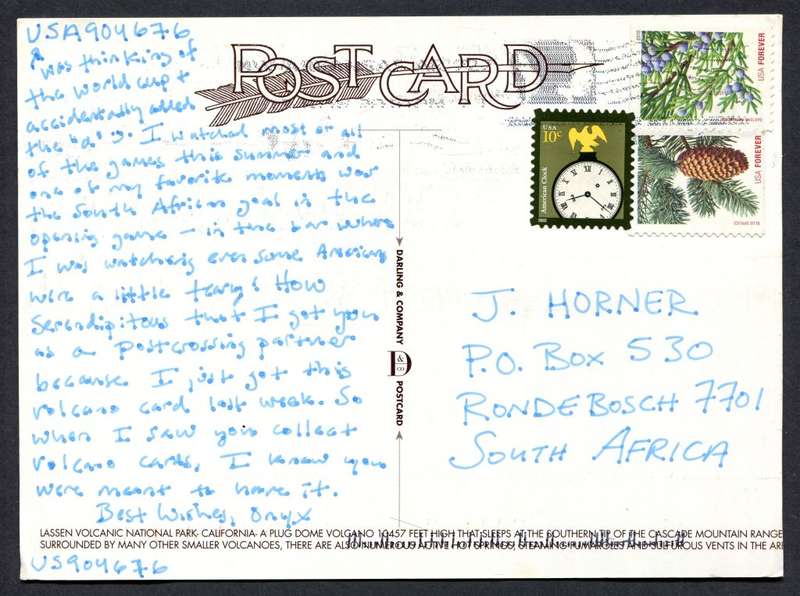 USA904676
I was thinking of
the world cup +
accidentally added
the
I watched most or all
of the games this summer and
one of my favorite moments was
the South African goal in the
opening game – in the bar where
I was watching even some Americans
were a little teary! How
Serendipitous that I got you
as a Postcrossing partner
because I just got this
volcano card last week. So
when I saw you collect
volcano cards, I knew you
were meant to have it.
Best Wishes, Onyx
US904676
POST CARD
USA FOREVER
USA
10c
American Clock
USA FOREVER
DARLING & COMPANY
D
& CO
POSTCARD
J. HORNER
P.O. Box 530
RONDEBOSCH 7701
SOUTH AFRICA
LASSEN VOLCANIC NATIONAL PARK- CALIFORNIA- A PLUG DOME VOLCANO 10457 FEET HIGH THAT SLEEPS AT THE SOUTHERN TIP OF THE CASCADE MOUNTAIN RANGE
SURROUNDED BY MANY OTHER SMALLER VOLCANOES, THERE ARE ALSO NUMEROUS ACTIVE HOT SPRINGS, STEAMING FUMAROLES AND SULFUROUS VENTS IN THE